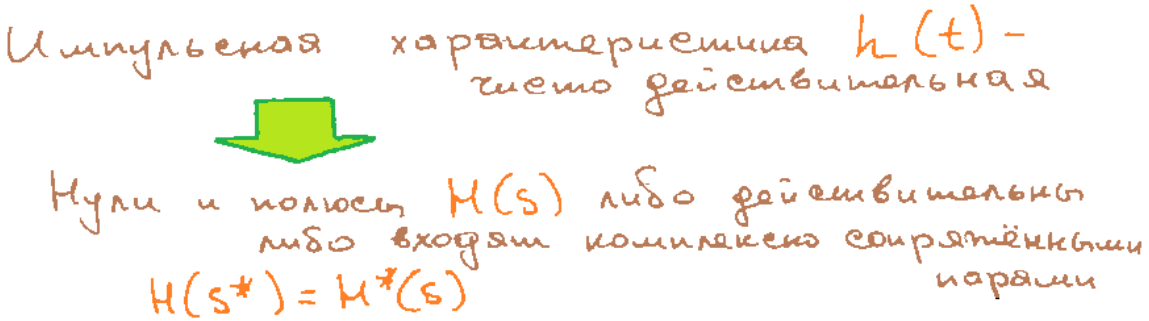 Импульсная характеристика h(t) -
чисто действительная
Нули и полюсы H(s) либо действительны
либо входят комплексно сопряжёнными
парами
H(s*) = H*(s)